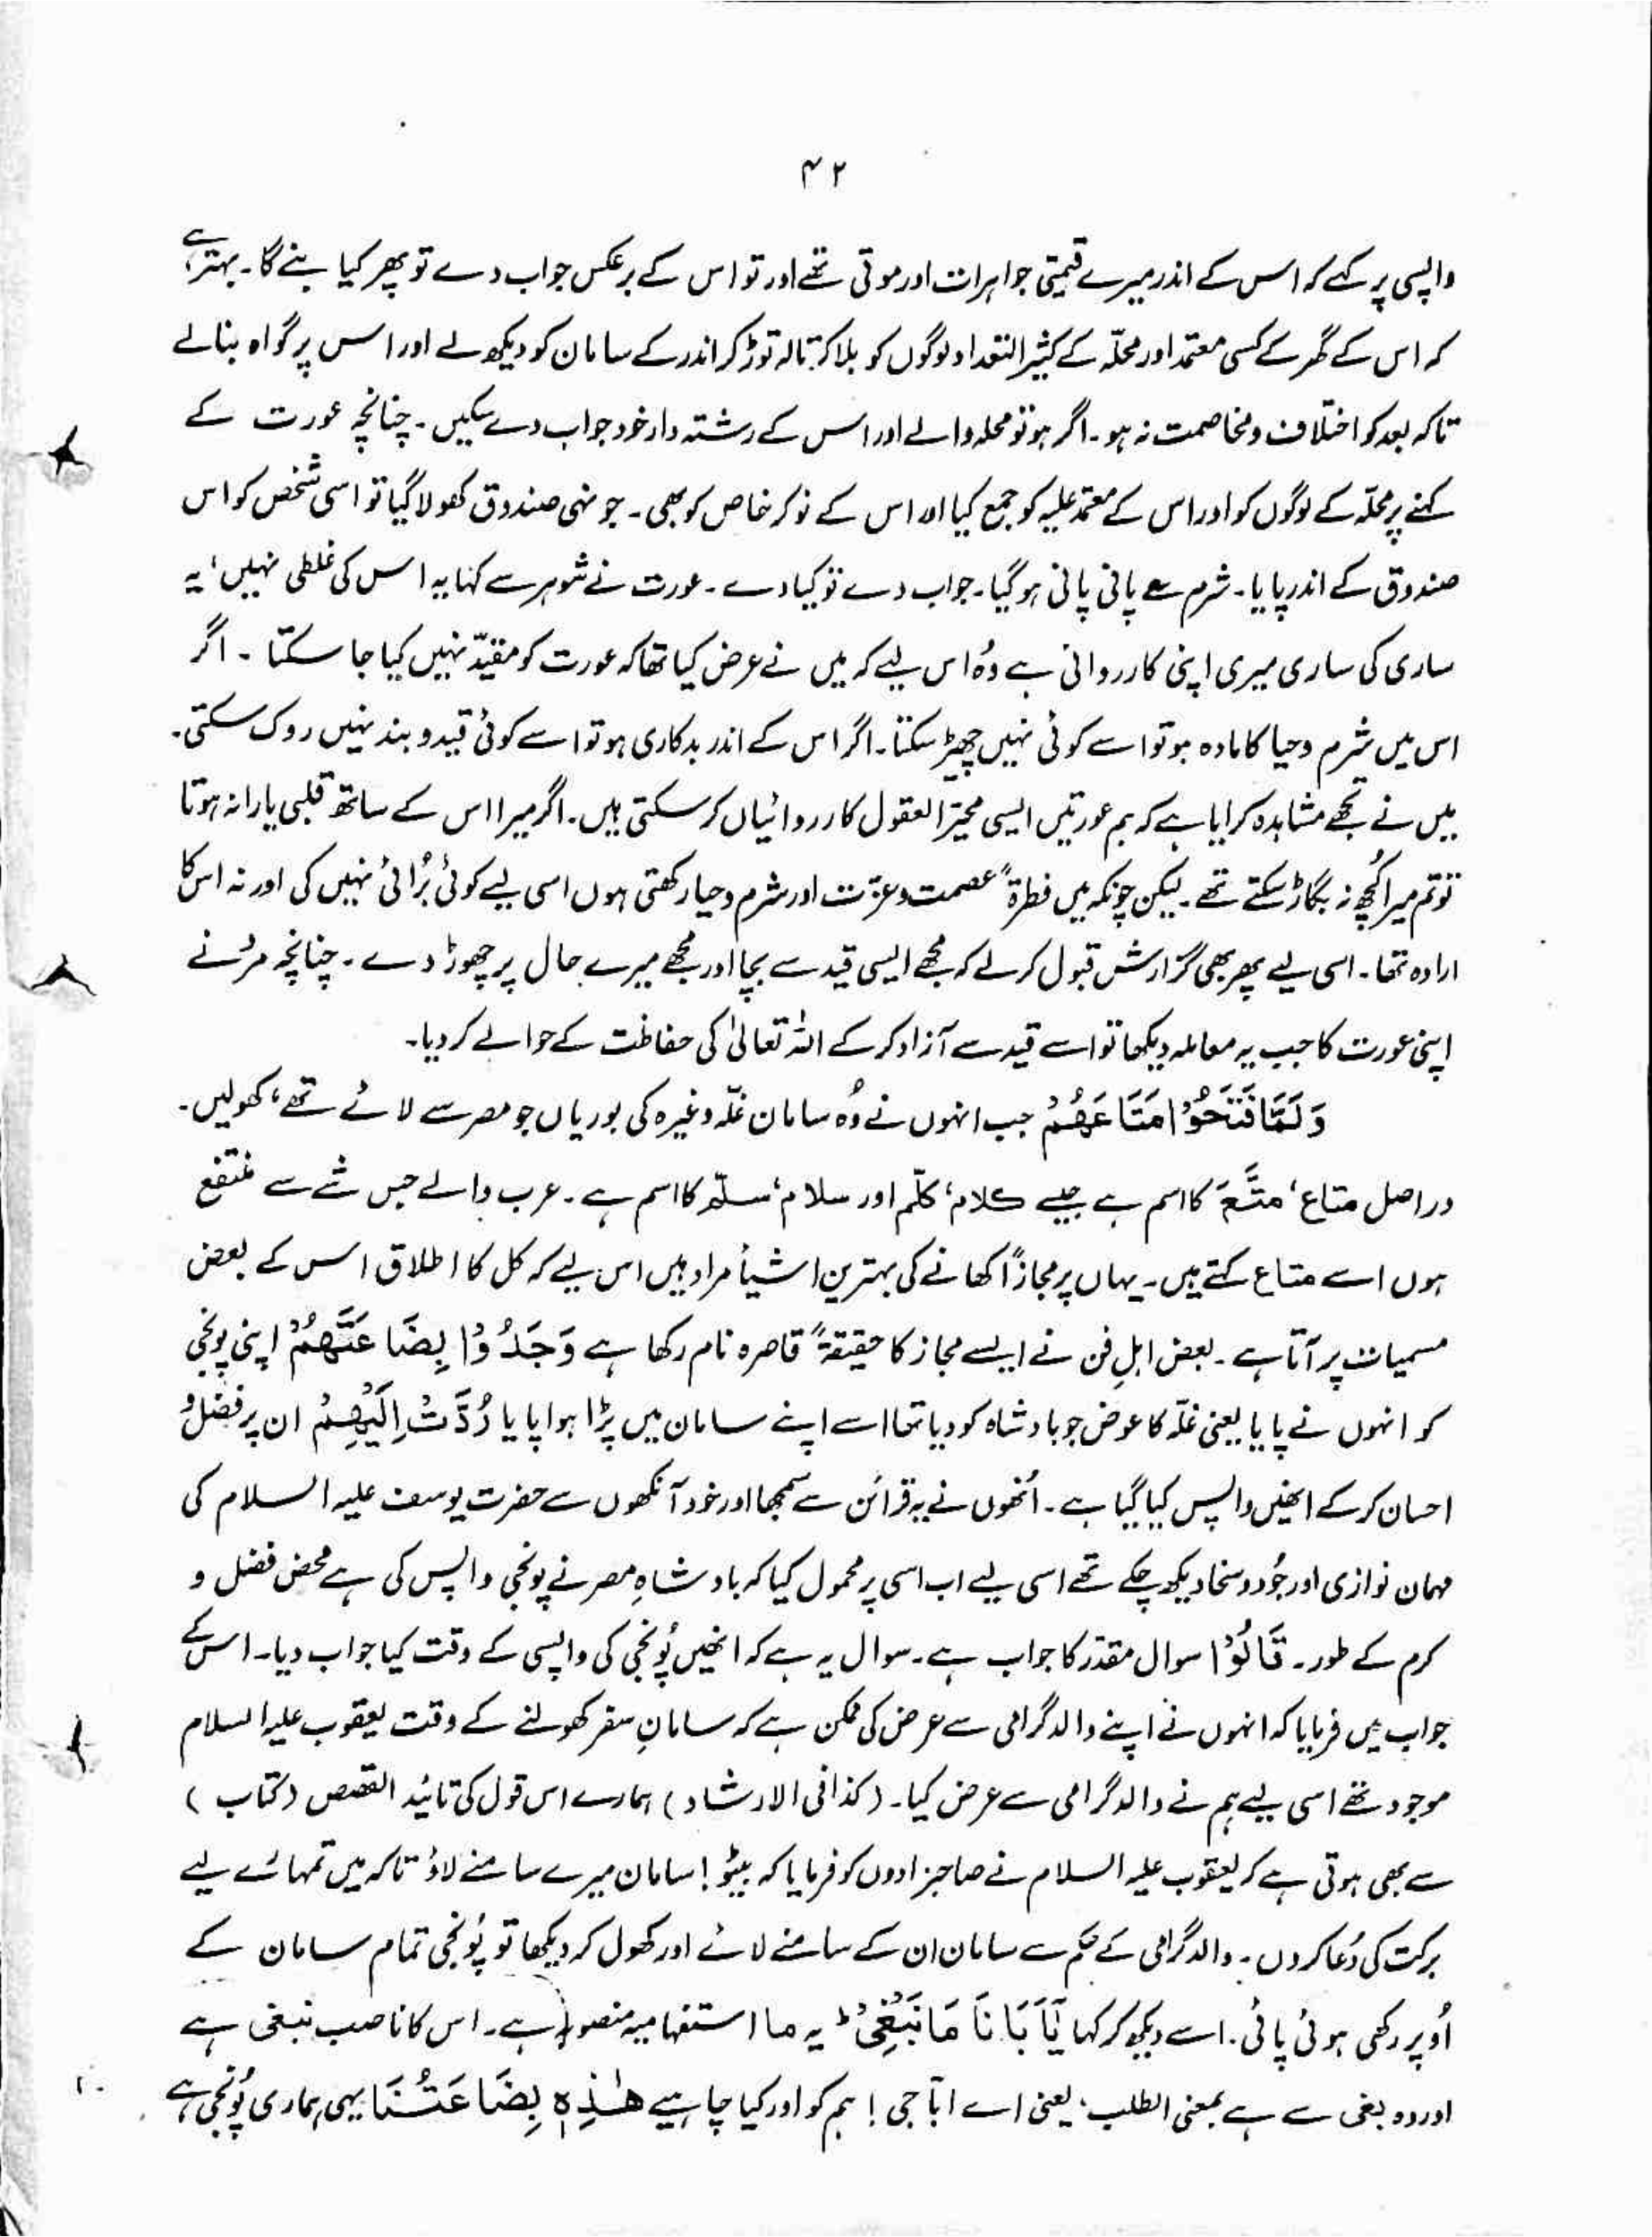 ۴۲
واپسی پر کہے کہ اس کے اندر میرے قیمتی جواہرات اور موتی تھے اور تو اس کے برعکس جواب دے تو پھر کیا بنے گا۔ بہتر ہے
کہ اس کے گھر کے کسی معتمد اور محلّہ کے کثیر التعداد لوگوں کو بلا کر تالہ توڑ کر اندر کے سامان کو دیکھ لے اور اس پر گواہ بنالے
تاکہ بعد کو اختلاف و مخاصمت نہ ہو۔ اگر ہو تو محلہ والے اور اس کے رشتہ دار خود جواب دے سکیں۔ چنانچہ عورت کے
کہنے پر محلّہ کے لوگوں کو اور اس کے معتمد علیہ کو جمع کیا اور اس کے نوکر خاص کو بھی۔ جونہی صندوق کھولا گیا تو اسی شخص کو اس
صندوق کے اندر پایا۔ شرم سے پانی پانی ہو گیا۔ جواب دے تو کیا دے۔ عورت نے شوہر سے کہا یہ اس کی غلطی نہیں، یہ
ساری کی ساری میری اپنی کارروائی ہے وُہ اس لیے کہ میں نے عرض کیا تھا کہ عورت کو مقیّد نہیں کیا جا سکتا۔ اگر
اس میں شرم و حیا کا مادہ ہو تو اسے کوئی نہیں چھیڑ سکتا۔ اگر اس کے اندر بدکاری ہو تو اسے کوئی قید و بند نہیں روک سکتی۔
میں نے تجھے مشاہدہ کرایا ہے کہ ہم عورتیں ایسی محیّر العقول کارروائیاں کر سکتی ہیں۔ اگر میرا اس کے ساتھ قلبی یارانہ ہوتا
تو تم میرا کُچھ نہ بگاڑ سکتے تھے۔ لیکن چونکہ میں فطرۃً عصمت و عزّت اور شرم و حیا رکھتی ہوں اسی لیے کوئی بُرائی نہیں کی اور نہ اس کا
ارادہ تھا۔ اسی لیے پھر بھی گزارش قبول کر لے کہ مجھے ایسی قید سے بچا اور مجھے میرے حال پر چھوڑ دے۔ چنانچہ مرد نے
اپنی عورت کا جب یہ معاملہ دیکھا تو اسے قید سے آزاد کر کے اللہ تعالیٰ کی حفاظت کے حوالے کر دیا۔
وَلَمَّا فَتَحُوْا مَتَاعَهُمْ جب انہوں نے وُہ سامان غلّہ وغیرہ کی بوریاں جو مصر سے لائے تھے، کھولیں۔
دراصل متاع، متَّعَ کا اسم ہے جیسے کلام، کلّم اور سلام، سلّم کا اسم ہے۔ عرب والے جس شے سے منتفع
ہوں اسے متاع کہتے ہیں۔ یہاں پر مجازاً کھانے کی بہترین اشیأ مراد ہیں اس لیے کہ کل کا اطلاق اس کے بعض
مسمیات پر آتا ہے۔ بعض اہلِ فن نے ایسے مجاز کا حقیقۃً قاصرہ نام رکھا ہے وَجَدُوْا بِضَاعَتَهُمْ اپنی پونجی
کو انہوں نے پایا یعنی غلّہ کا عوض جو بادشاہ کو دیا تھا اسے اپنے سامان میں پڑا ہوا پایا رُدَّتْ اِلَيْهِمْ ان پر فضل و
احسان کر کے انھیں واپس کیا گیا ہے۔ اُنھوں نے یہ قرائن سے سمجھا اور خود آنکھوں سے حضرت یوسف علیہ السلام کی
مہمان نوازی اور جُود و سخا دیکھ چکے تھے اسی لیے اب اسی پر محمول کیا کہ بادشاہِ مصر نے پونجی واپس کی ہے محض فضل و
کرم کے طور۔ قَالُوْا سوال مقدّر کا جواب ہے۔ سوال یہ ہے کہ انھیں پُونجی کی واپسی کے وقت کیا جواب دیا۔ اس کے
جواب میں فرمایا کہ انہوں نے اپنے والد گرامی سے عرض کی ممکن ہے کہ سامانِ سفر کھولنے کے وقت یعقوب علیہ السلام
موجود تھے اسی لیے ہم نے والد گرامی سے عرض کیا۔ (کذا فی الارشاد) ہمارے اس قول کی تائید القصص (کتاب)
سے بھی ہوتی ہے کہ یعقوب علیہ السلام نے صاحبزادوں کو فرمایا کہ بیٹو! سامان میرے سامنے لاؤ تاکہ میں تمہارے لیے
برکت کی دُعا کردوں۔ والد گرامی کے حکم سے سامان ان کے سامنے لائے اور کھول کر دیکھا تو پُونجی تمام سامان کے
اُوپر رکھی ہوئی پائی۔ اسے دیکھ کر کہا يٰٓاَبَانَا مَا نَبْغِیْ ؕ یہ ما استفہامیہ منصوب ہے۔ اس کا ناصب نبغی ہے
اور وہ بغی سے ہے بمعنی الطلب، یعنی اے ابّا جی! ہم کو اور کیا چاہیے هٰذِهٖ بِضَاعَتُنَا یہی ہماری پُونجی ہے